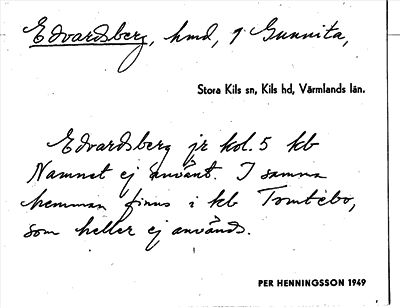 Edvardsberg, hmd, i Gunnita,
Stora Kils sn, Kils hd, Värmlands län.
Edvardsberg jr kol. 5 kb
Namnet ej använt. I samma
hemman finns i kb Tomtebo,
som heller ej används.
PER HENNINGSSON 1949